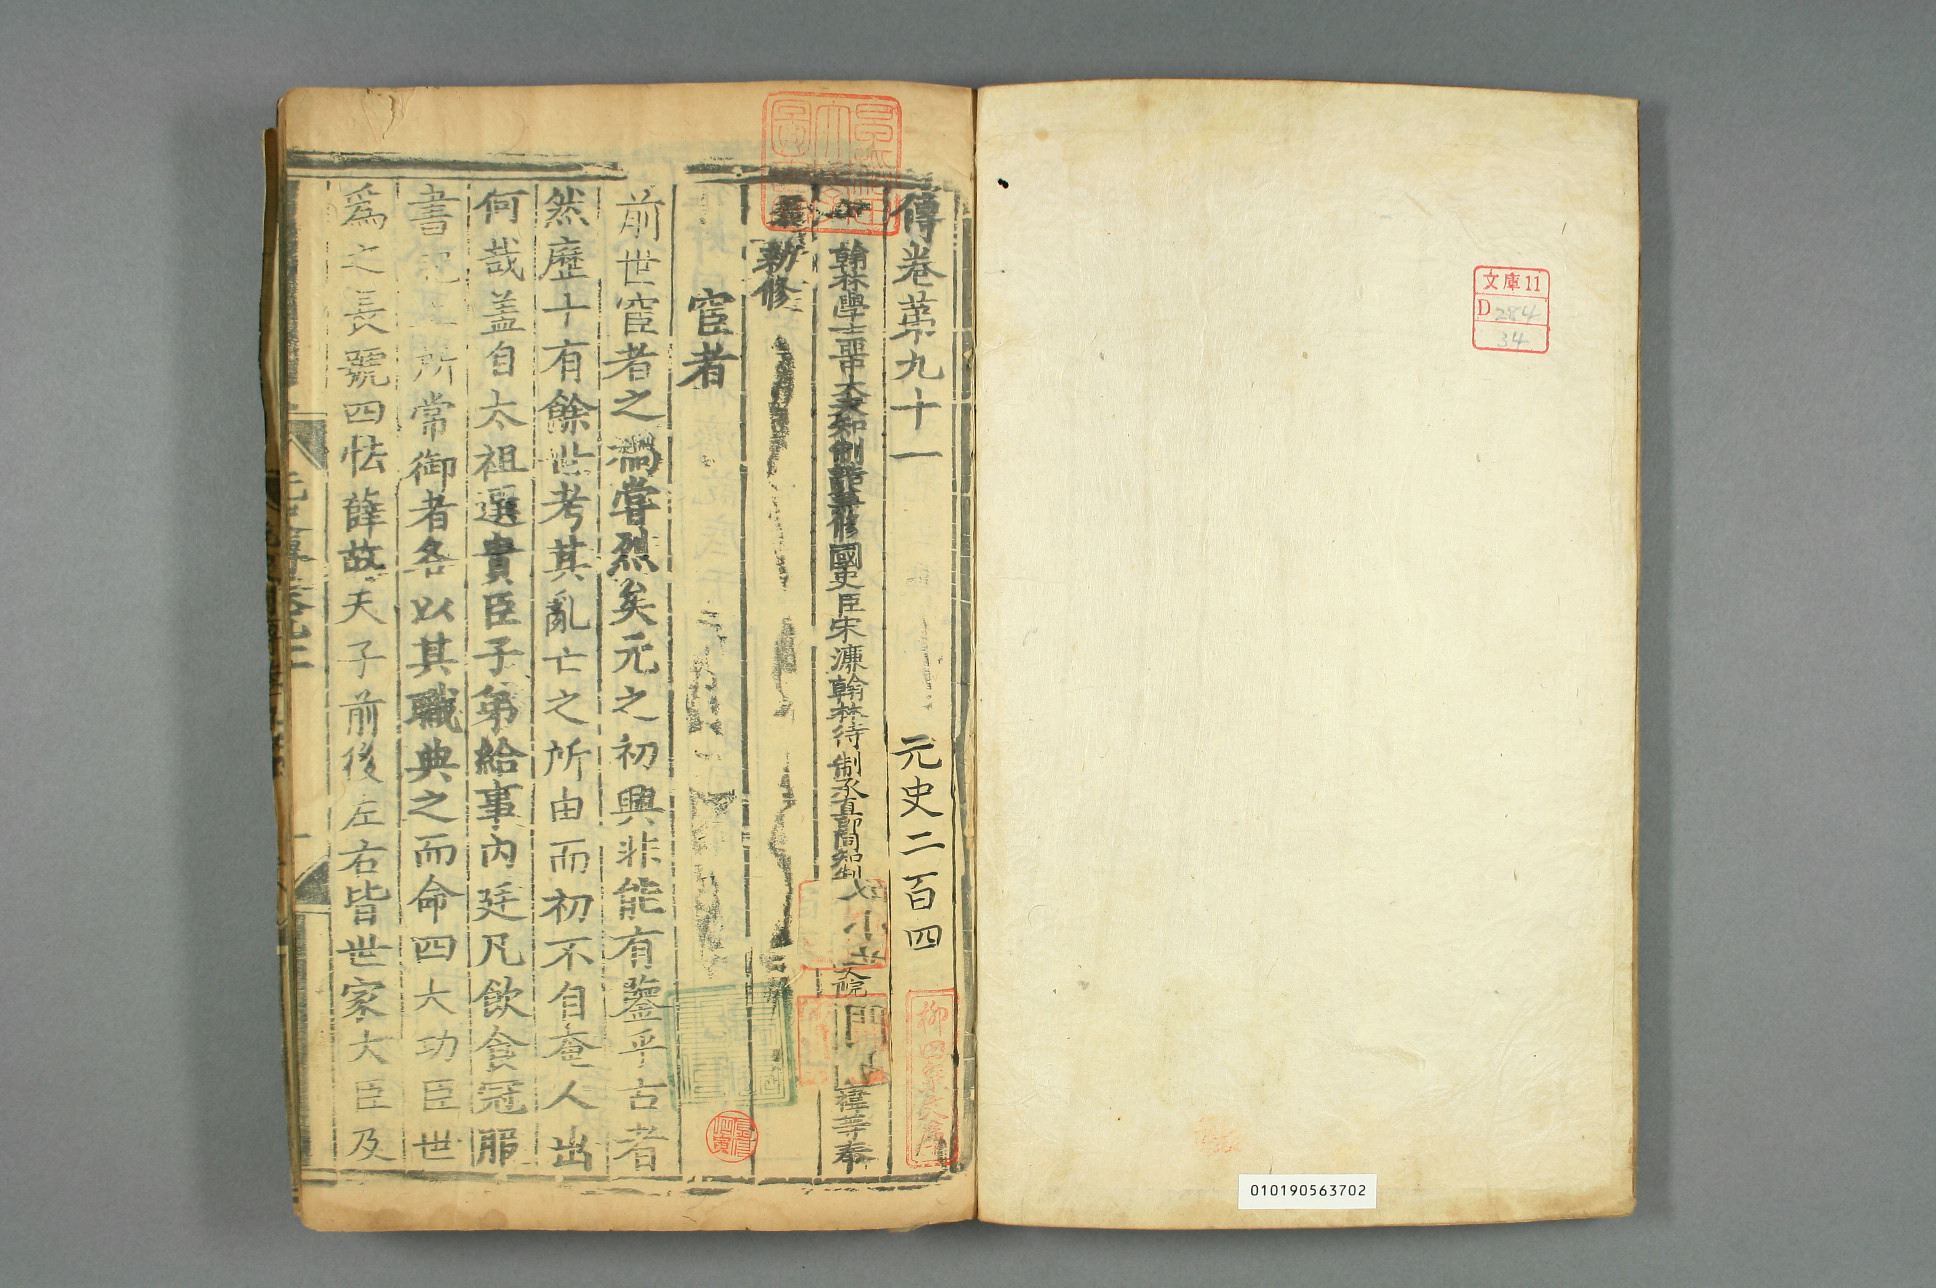 文庫11
D 284
34
010190563702
傳卷第九十一
元史二百四
翰林學士亞中大夫知制誥兼修國史臣宋濂翰林待制承直郎同知制
院
禕等奉
勑修
宦者
前世宦者之禍嘗烈矣元之初興非能有鑒乎古者
然歷十有餘世考其亂亡之所由而初不自奄人出
何哉盖自太祖選貴臣子弟給事內廷凡飲食冠服
書 所常御者各以其職典之而命四大功臣世
爲之長號四怯薛故天子前後左右皆世家大臣及